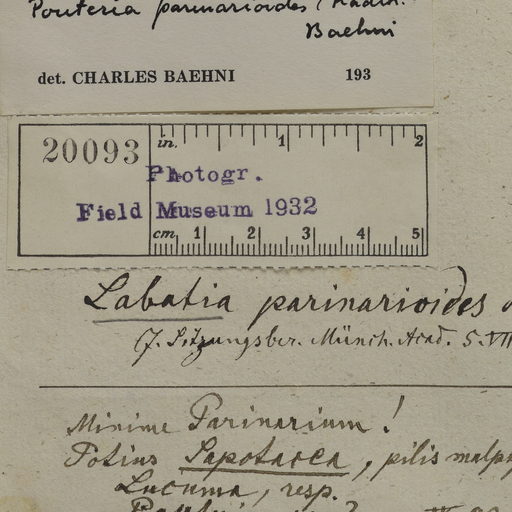 Pouteria parinarioides (Radlk.
Baehni
det. CHARLES BAEHNI 193
20093
in. 1 2
Photogr.
Field Museum 1932
cm 1 2 3 4 5
Labatia parinarioides
(f. Sitzungsber. Münch. Acad. 5. VII
Minime Parinarium!
Potius Sapotacea, pilis malp
Lucuma, resp.